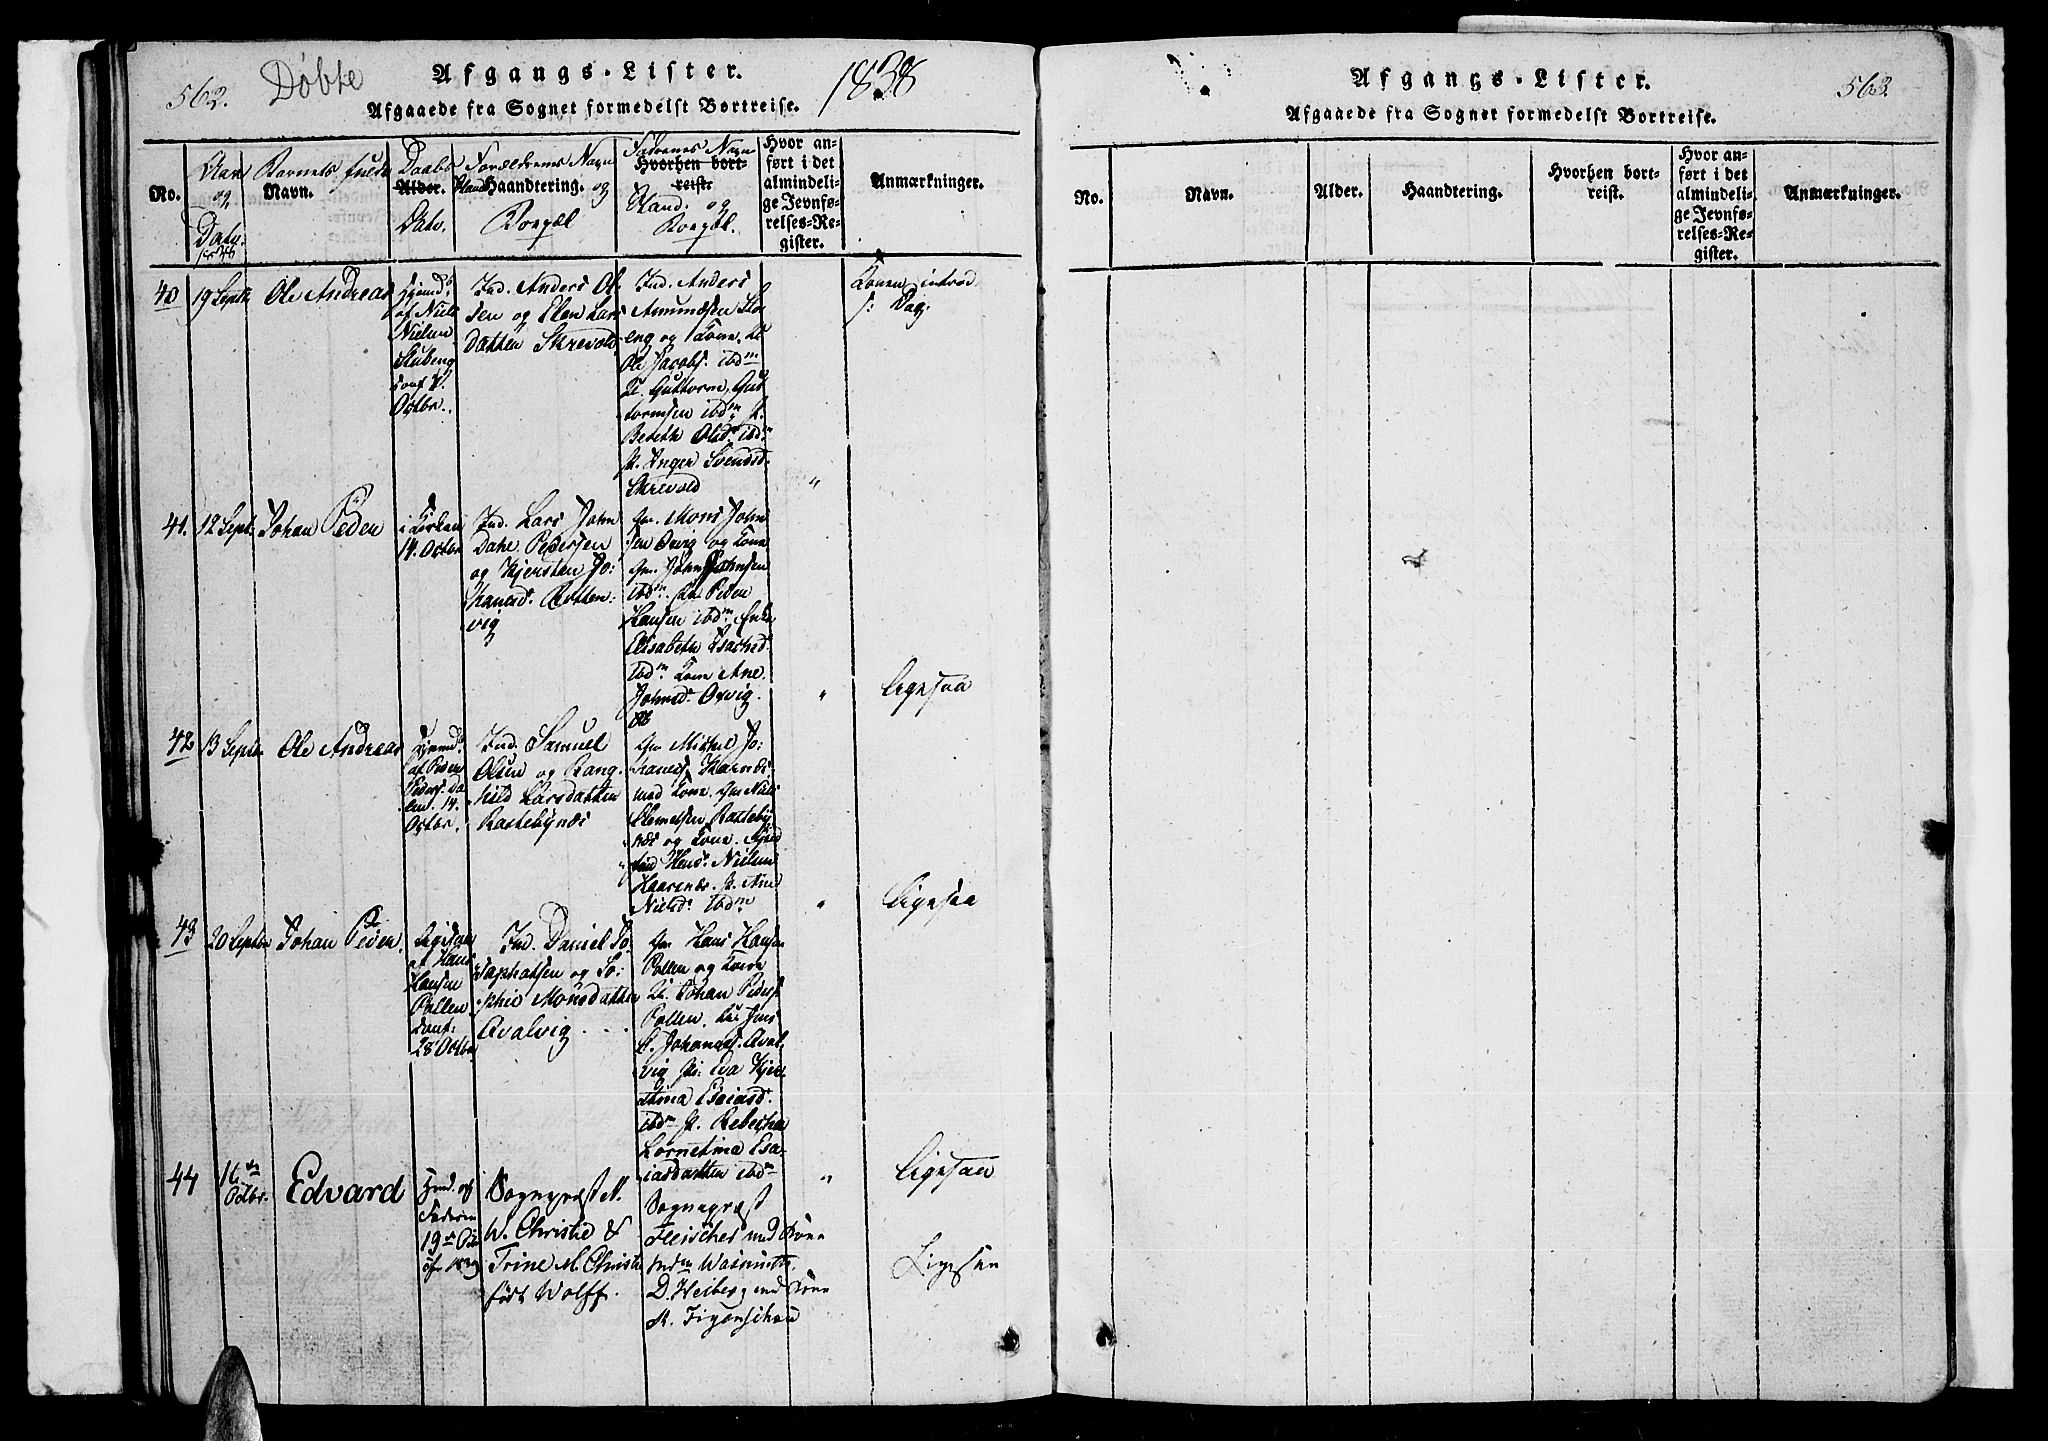 562. Döbte
Afgangs-Lister.
1838
Afgaaede fra Sognet formedelst Bortreise.
No.
Aar og Dato.
Barnets fulde Navn.
Daabs Alder. Dato.
Forældrenes Navn Stand Haandtering. og Bopæl
Faderenes Navn
Hvorhen bort-
reist.
Stand. og
Bopæl.
Hvor an-
ført i det
almindeli-
ge Jevnfø-
relses-Re-
gister.
Anmærkninger.
40
19 Septr
Ole Andreas
Hjemd.
af Niels
Nielsen
conf.
Octbr.
Ind. Anders Ol-
sen og Elen Lars
Datter Skrevold
Ind. Anders
Amundsen
eng og Kone.
Ole Jacobs. ibdm
Guttorm Gut
tormsen ibdm
Bereth Olsd. ibdm
P. Inger Svendsd.
Skrevold
"
Konen introd
s: Dag.
41.
12 Sept.
Johan Peder
i Kirken
14. Octbr
Ind. Lars John
Dahl Pedersen
og Kjersten Jo:
hansd.
vig
Gm. Mons John
sen Oxvig og Kone
Gm. John Johnsen
ibdm. Peder
Hansen ibdm Enke
Elisabeth Isachsd.
ibdm Kone Ane
Johnsd. Oxvig.
"
Ligesaa
42
13 Septr
Ole Andreas
Hjemd.
af Peder
Peders. Da
len. 14.
Octbr.
Ind. Samuel
Olsen og Rang
hild Larsdatter
Rastebynæs
Gm Michel Jo:
hanes. Kaarnæs
med Kone. Gm Niels
Clemetsen Rasteby
næs og Kone.
Nielsen
Kaarnæs. P. Ane
Nielsd. ibdm
"
Ligesaa
43
20 Septbr
Johan Peder.
Ligesaa
af Hans
Hansen
Pollen
conf:
28 Octbr
Ind. Daniel Jo
saphatsen og So:
phie Monsdatter
Qvalvig
Gm Hans Hansen
Pollen og Kone
Johan Peders.
Pollen. Jens
Johanes. Qval
vig P: Eva Kjer
stina Esaiasd.
ibdm P. Rebecha
Lornetina Esa-
iasdatter ibdm
"
Ligesaa
44
16de
Octbr.
Edvard
Hjmd. af
Faderen
19de
1839
Sognepræst N.
W. Christie &
Trine M. Christie
født Wolff.
Sognepræst
Fleischer med Kone
Wasmuth
D. Heiberg med Kone
M. Figenschou
Ligesaa
Afgangs-Lister.
563.
Afgaaede fra Sognet formedelst Bortreise.
No.
Navn.
Alder.
Haandtering.
Hvorhen bort-
reist.
Hvor an-
ført i det
almindeli-
ge Jevnfø-
relses-Re-
gister.
Anmærkninger.